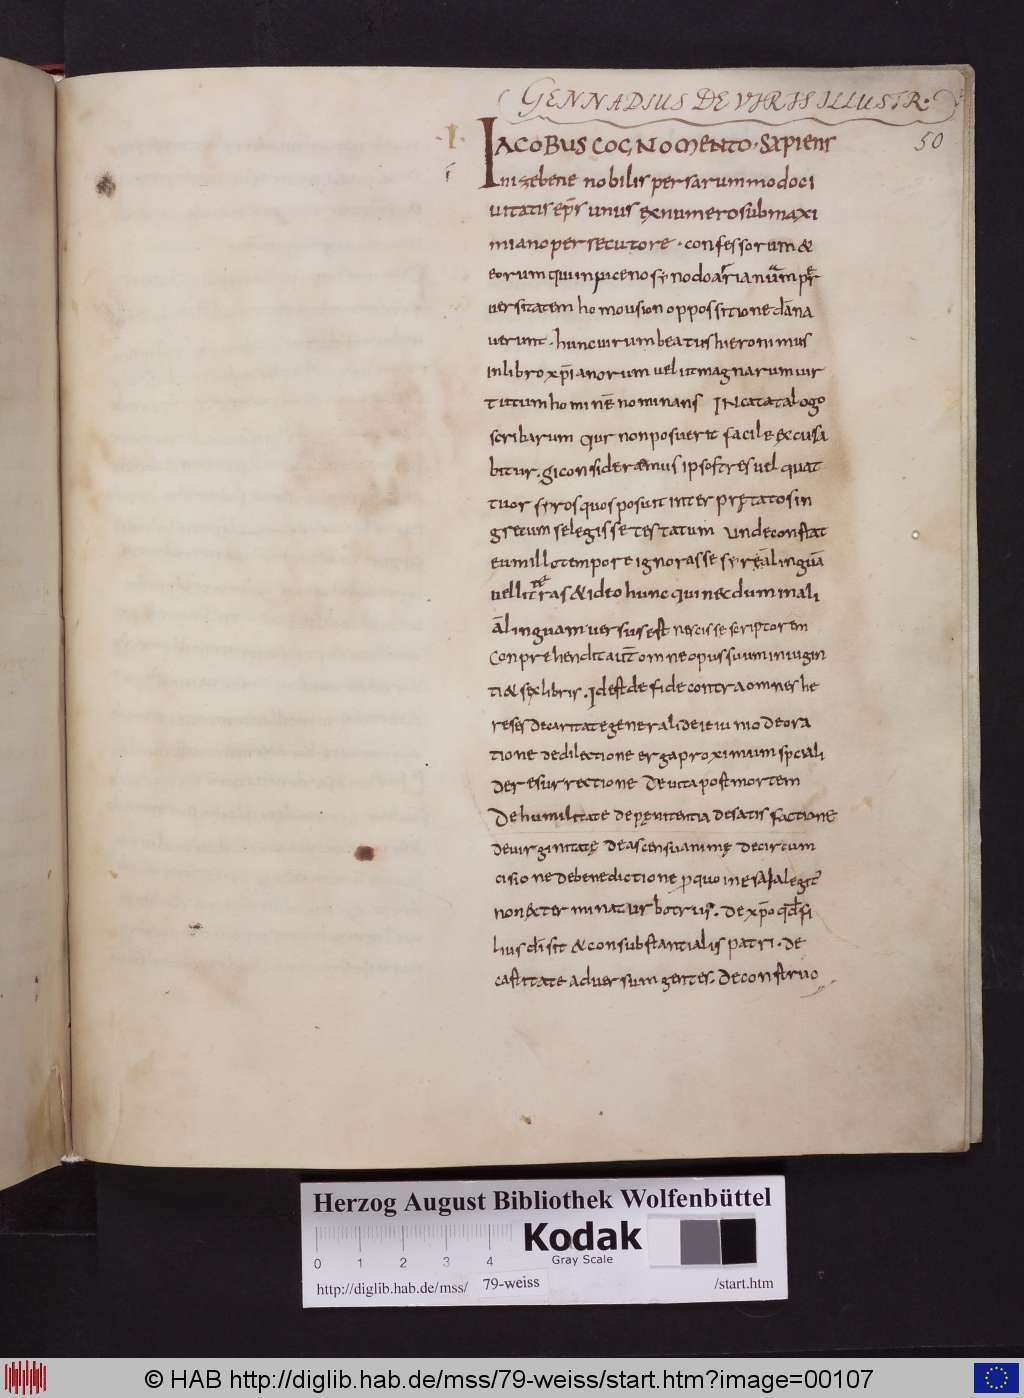 GENNADIUS DE VIRIS ILLUSTR:
50
.I.
IACOBUS COGNOMENTO · SAPIENS
nizebene nobilis persarum modo ci
uitatis ep̅s unus ex numero sub maxi
miano persecutore · confessorum &
eorum qui in niceno synodo arrianam per
uersitatem homousion oppossitione da̅na
uerunt · hunc uirum beatus hieronimus
in libro xp̅ianorum uel ut magnarum uir
tutum homine̅ nominans IN catatalogo
scribarum qur non posuerit facile excusa
bitur · si consideramus ipsos tres uel quat
tuor syros quos posuit interpretatos in
grecum se legisse testatum unde constat
eum illo tempore ignorasse syrea̅ lingua̅
uel litteras & ideo hunc qui necdum in ali
a̅ linguam uersus est nescisse scriptorem
Conprehendit aut̅ omne opus suum in uigin
ti & sex libris · Id est de fide contra omnes he
reses de caritate generali de ieiunio de ora
tione de dilectione erga proximum spciali
de resurrectione De uita post mortem
De humilitate de penitentia de satisfactione
de uirginitate de ascensu anime de circum
cisione de benedictione pro quo in esaia legit̅
non exterminatur botrus · de xp̅o quod fi
lius di̅ sit & consubstantialis patri · de
castitate aduersum gentes · De construo
Herzog August Bibliothek Wolfenbüttel
0 1 2 3 4
Kodak
Gray Scale
http://diglib.hab.de/mss/ 79-weiss /start.htm
© HAB http://diglib.hab.de/mss/79-weiss/start.htm?image=00107